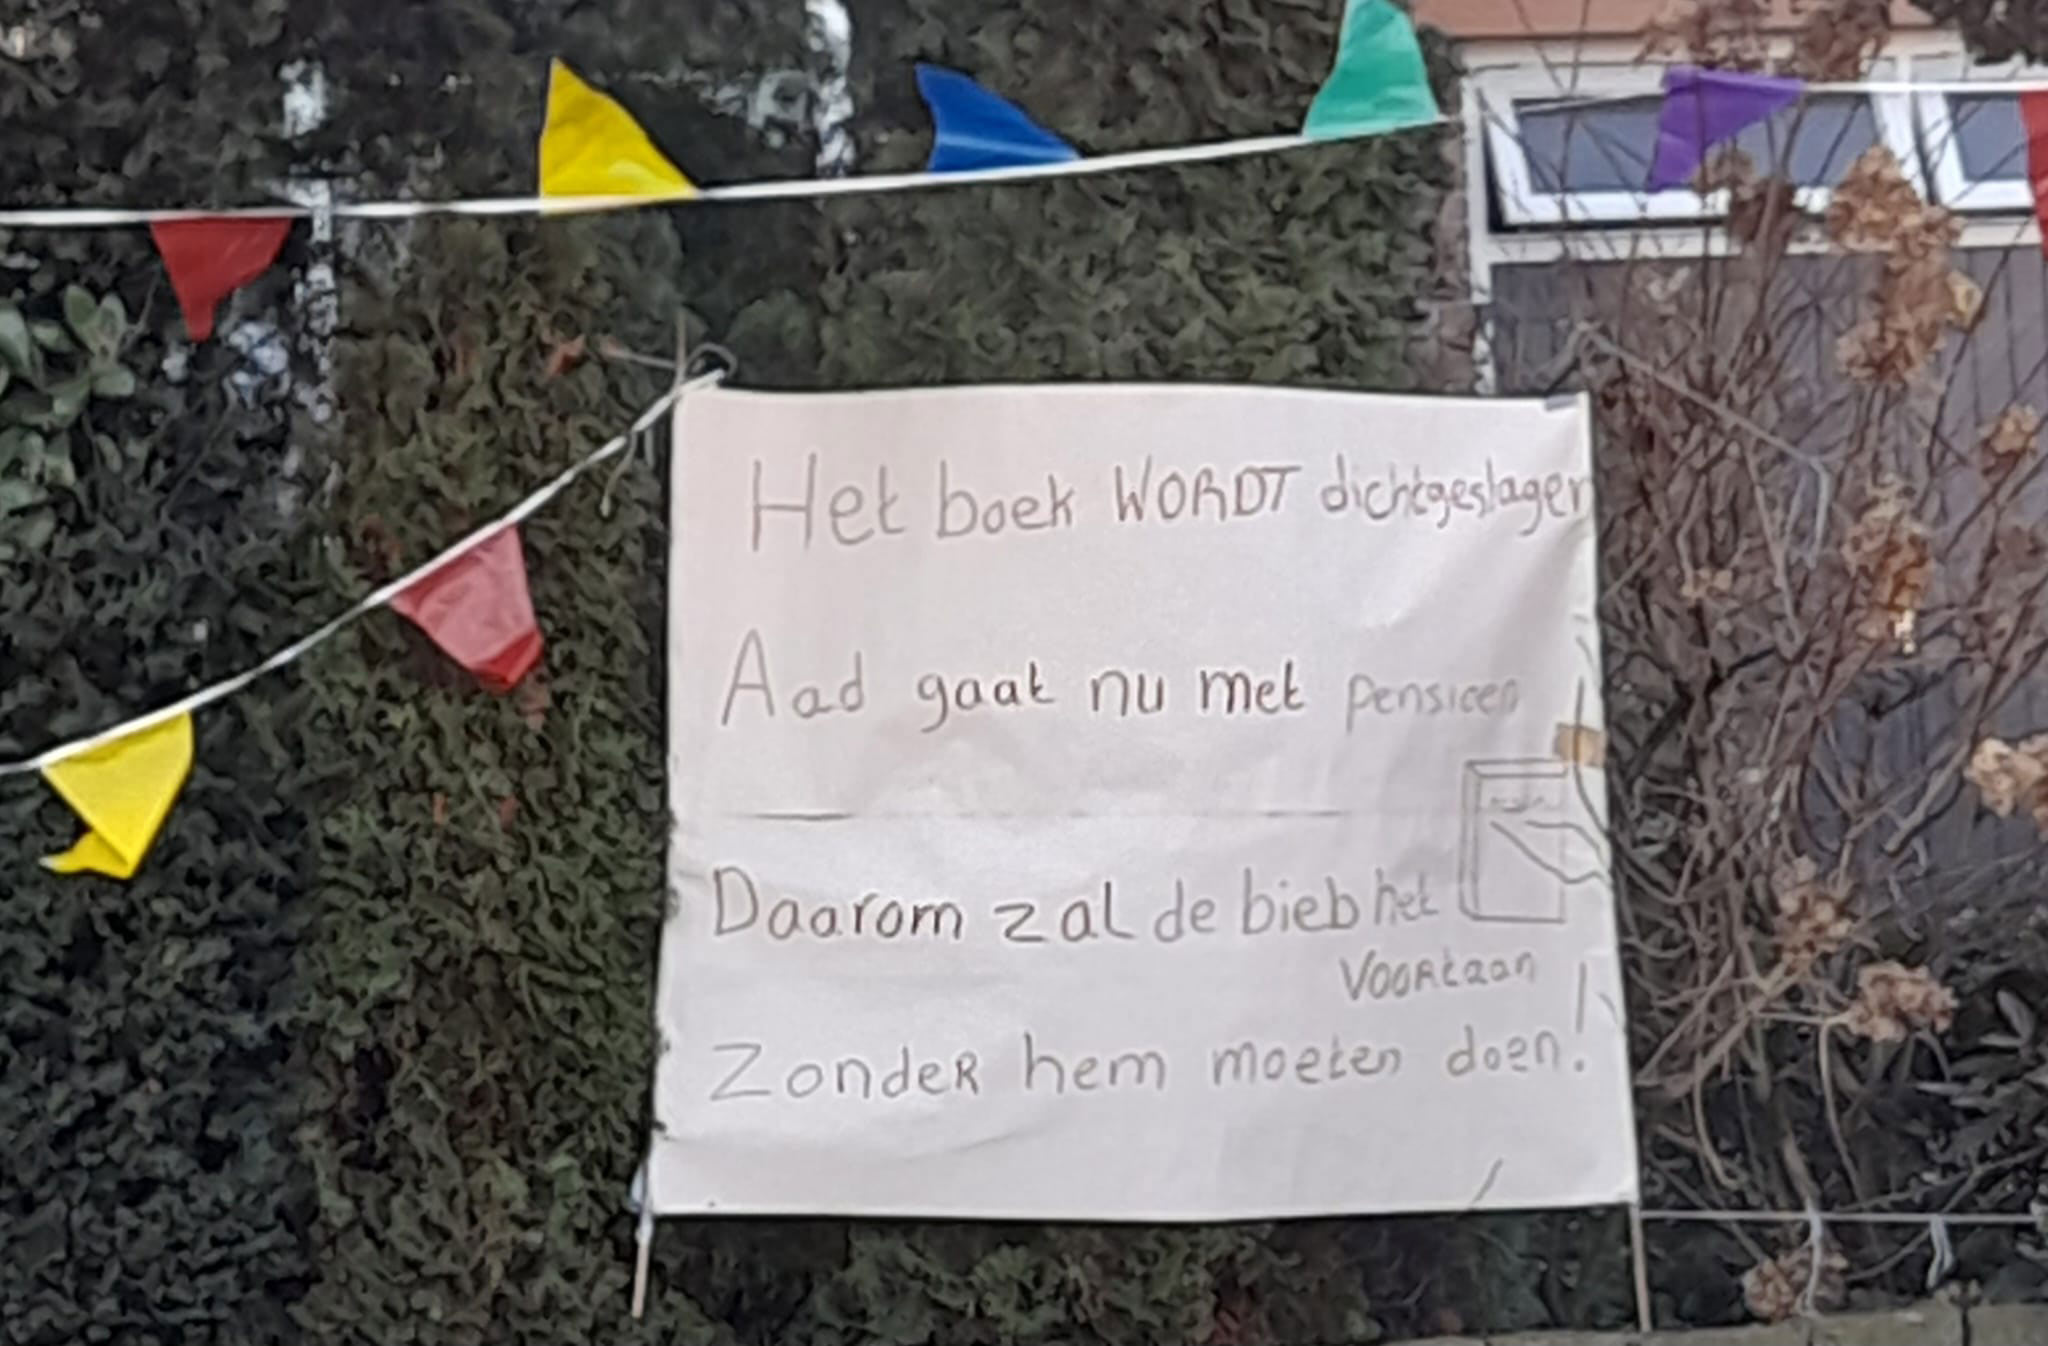 Het boek WORDT dichtgeslagen
Aad gaat nu met pensioen
Daarom zal de bieb het
voortaan
Zonder hem moeten doen!